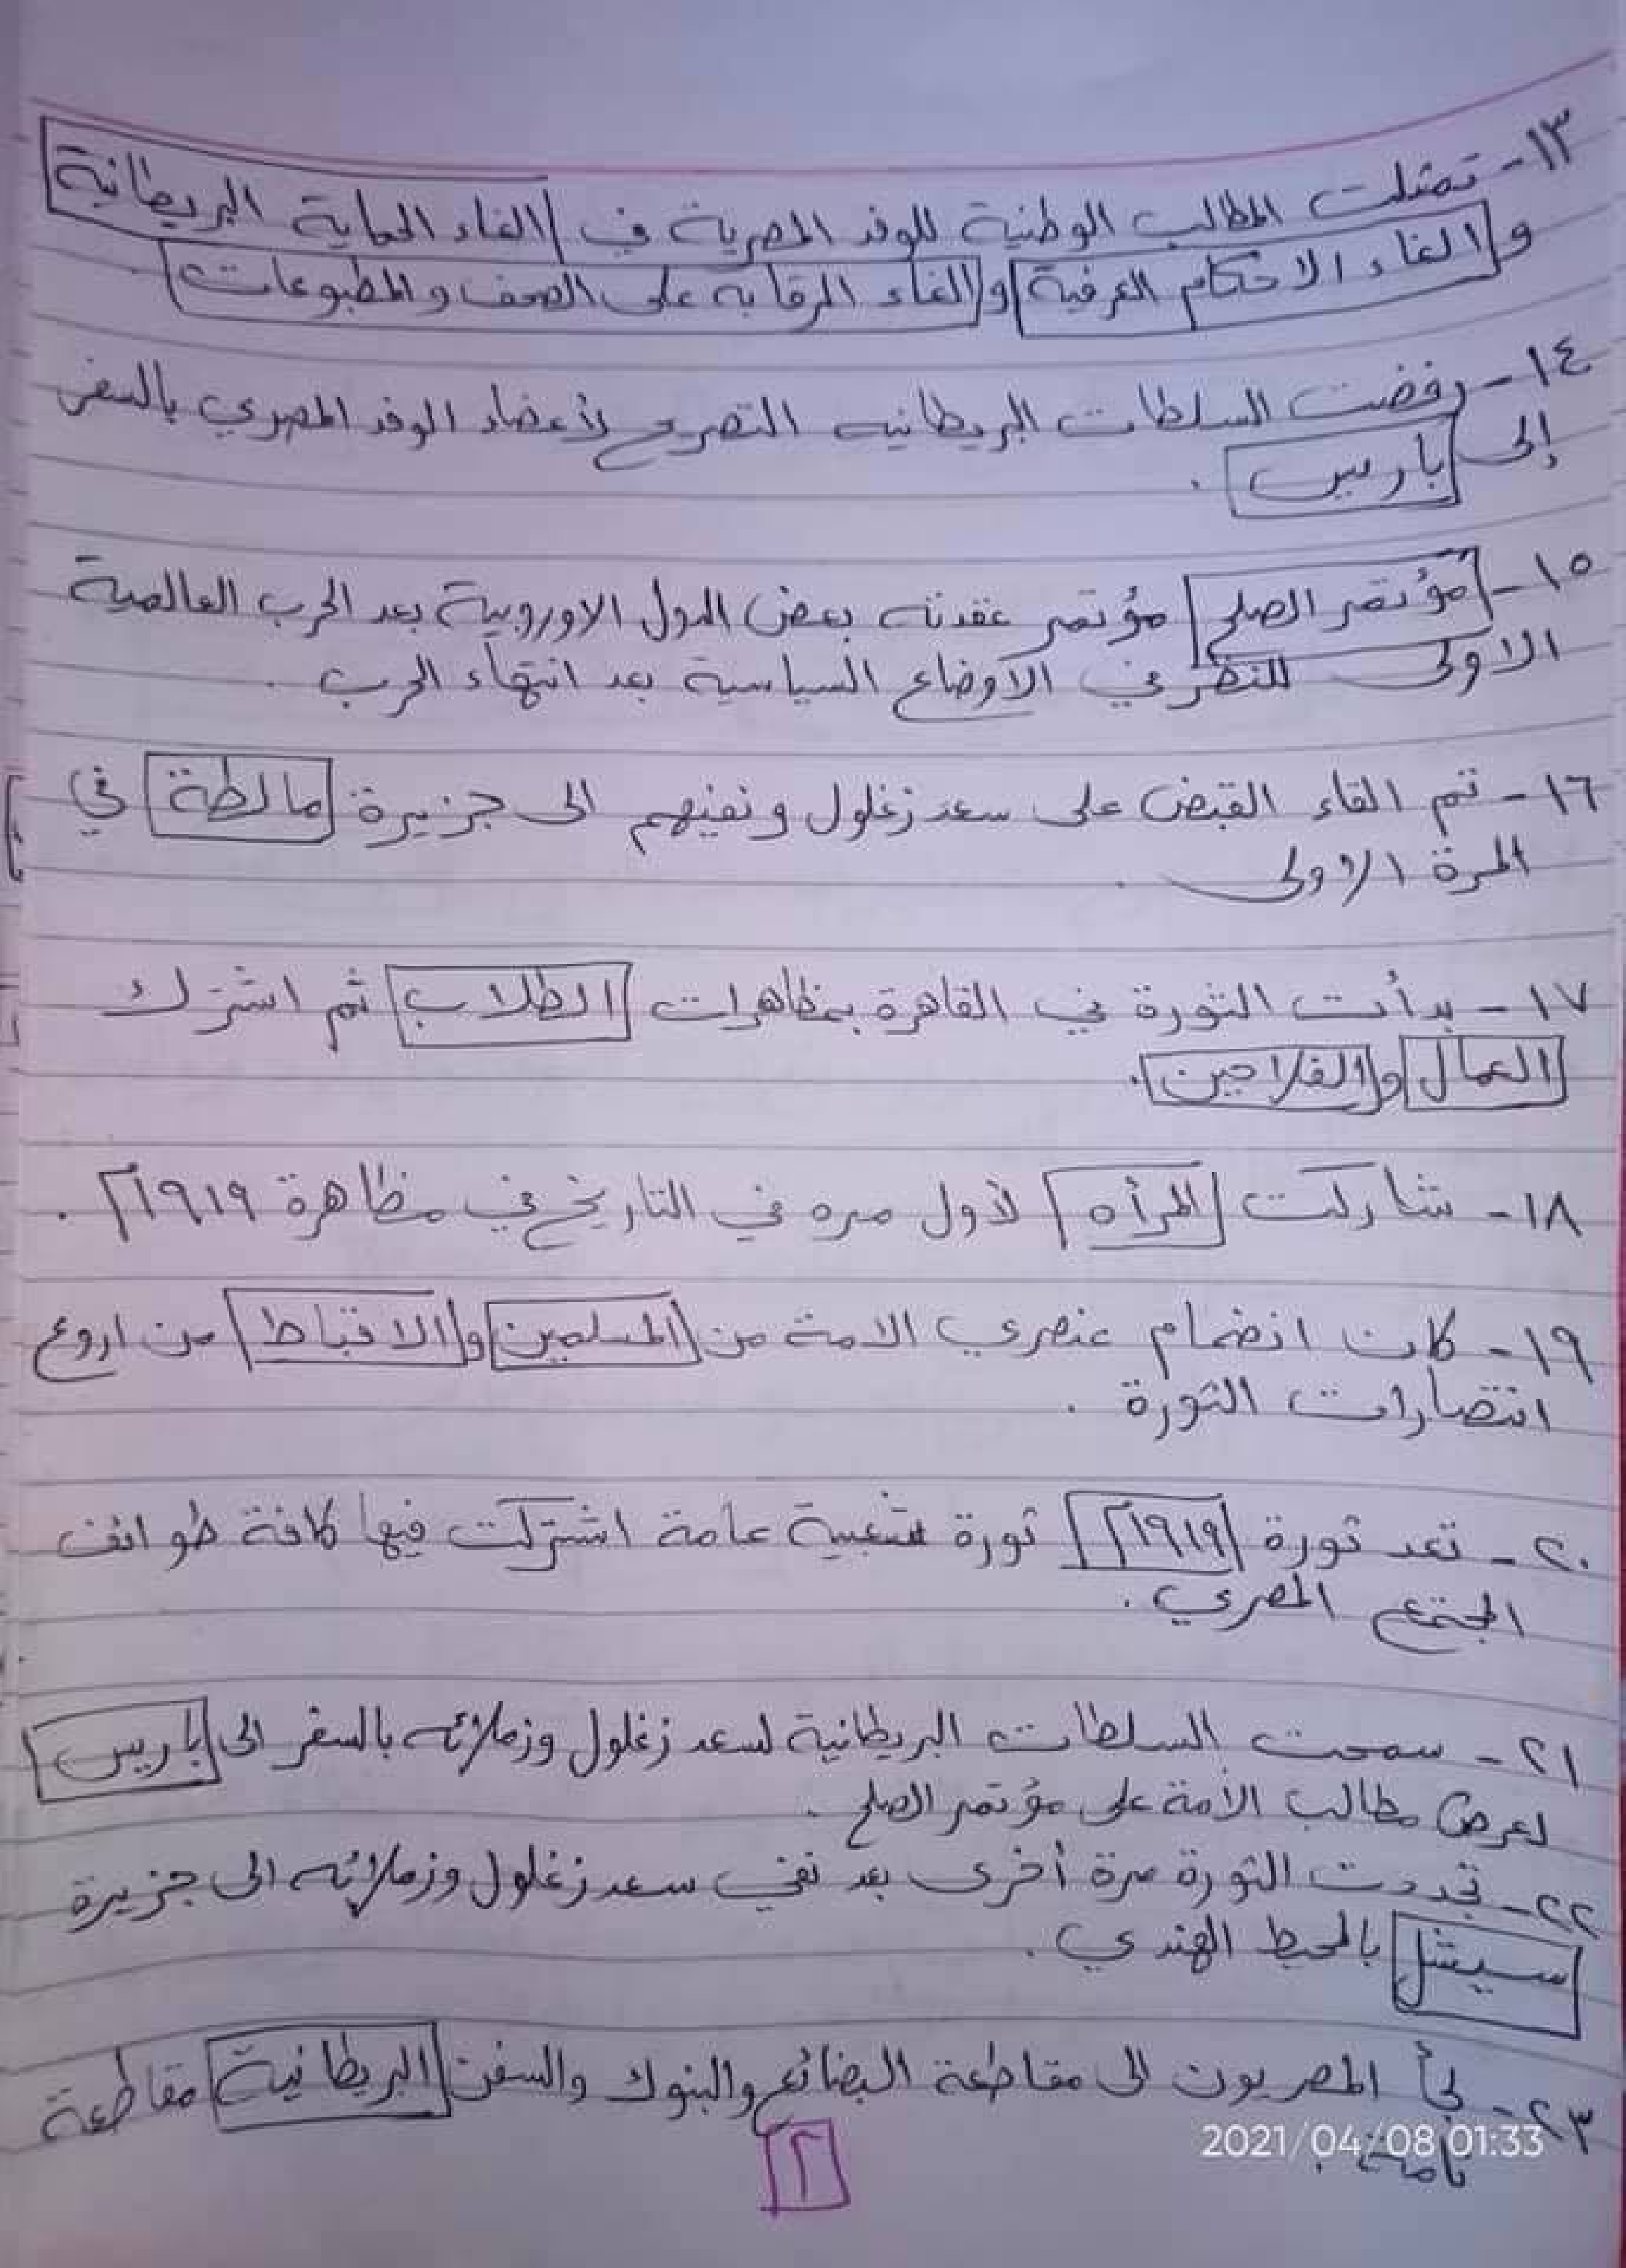 ١٣- تمثلت المطالب الوطنية للوفد المصرية في الغاء الحماية البريطانية
و الغاء الاحكام العرفية و الغاء الرقابه على الصحف والمطبوعات
١٤- رفضت السلطات البريطانيه التصريح لأعضاء الوفد المصري بالسفر
إلى باريس .
١٥- مؤتمر الصلح مؤتمر عقدته بعض الدول الاوروبية بعد الحرب العالمية
الاولى للنظر في الاوضاع السياسية بعد انتهاء الحرب .
١٦- تم القاء القبض على سعد زغلول ونفيهم الى جزيرة مالطة في
المرة الاولى .
١٧- بدأت الثورة في القاهرة بمظاهرات الطلاب ثم اشترك
العمال و الفلاحين .
١٨- شاركت المرأه لأول مره في التاريخ في مظاهرة ١٩١٩م .
١٩- كان انضمام عنصري الامة من المسلمين و الاقباط من اروع
انتصارات الثورة .
٢٠- تعد ثورة ١٩١٩م ثورة شعبية عامة اشتركت فيها كافة طوائف
المجتمع المصري .
٢١- سمحت السلطات البريطانية لسعد زغلول وزملائه بالسفر الى باريس
لعرض مطالب الأمة على مؤتمر الصلح .
٢٢- تجددت الثورة مرة أخرى بعد نفي سعد زغلول وزملائه الى جزيرة
سيشل بالمحيط الهندي .
٢٣- لجأ المصريون الى مقاطعة البضائع والبنوك والسفن البريطانية مقاطعة
تامة .
2021/04/08 01:33
٢